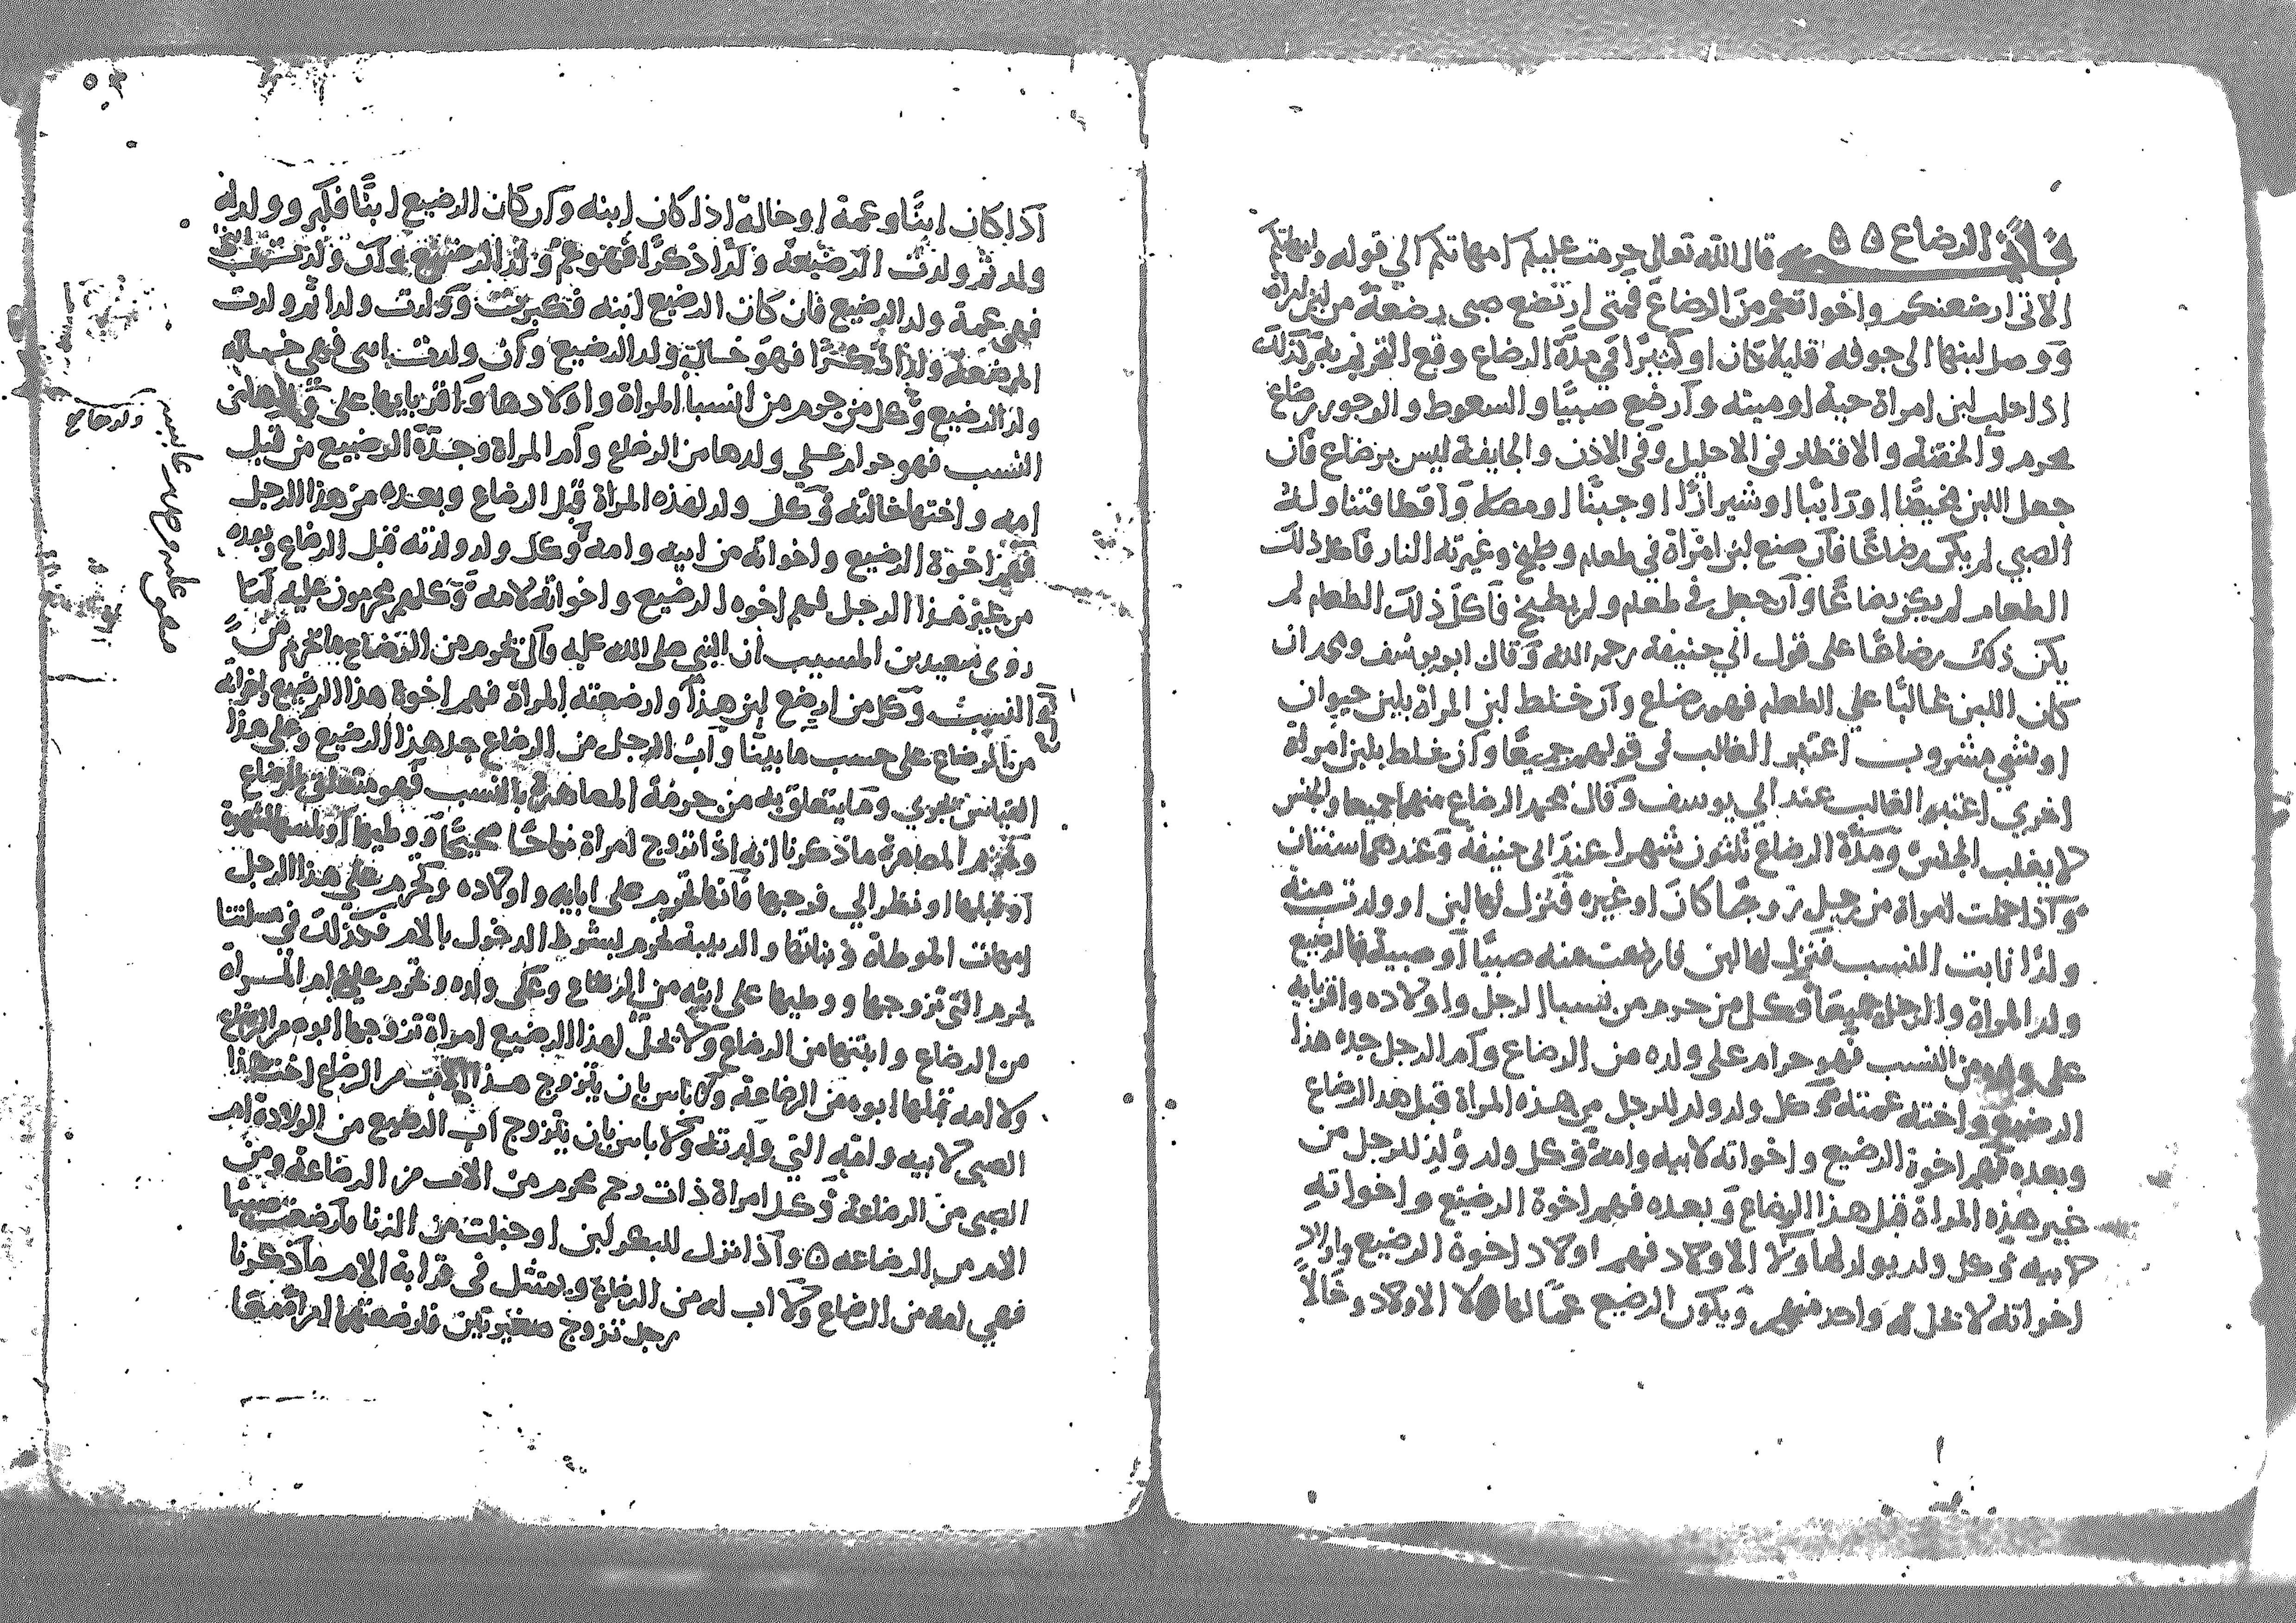 في الرضاع ٥٥ قال الله تعالى حرمت عليكم امهاتكم الي قوله وامهاتكم
الاتى ارضعنكم واخواتكم من الرضاعة فمتى ارتضع صبى رضعة من لبن امراة
ووصل لبنها الى جوفه قليلا كان او كثيرًا في مدة الرضاع وقع التحريم به وكذلك
اذا حلب لبن امراة حية او ميته وارضع صبيًا والسعوط والوجور رضاع
محرم والحقنة والاقطار فى الاحليل وفى الاذن والجايفة ليس برضاع فان
جعل اللبن مخيضًا او رايبًا او شيرازًا او جبنًا او مصلا واقطا فتناوله
الصبي لم يكن رضاعًا فان صنع لبن امراة في طعام وطبخ وغيرته النار فاكل ذلك
الطعام لم يكن رضاعًا وان جعل في طعام ولم يطبخ فاكل ذلك الطعام لم
يكن ذلك رضاعًا على قول ابي حنيفة رحمه الله وقال ابو يوسف ومحمد ان
كان اللبن غالبًا علي الطعام فهو رضاع وان خلط لبن المراة بلبن حيوان
او شي مشروب اعتبر الغالب فى قولهم جميعًا وان خلط بلبن امراة
اخري اعتبر الغالب عند ابي يوسف وقال محمد الرضاع منهما جميعا والجنس
لا يغلب الجنس ومدة الرضاع ثلثون شهرا عند ابى حنيفة وعندهما سنتان
واذا حملت امراة من رجل زوجًا كان او غيره فنزل لها لبن او ولدت منه
ولدًا ثابت النسب فنزل لها لبن فارضعت منه صبيًا او صبية فالرضيع
ولد المراة والرجل جميعًا وكل من حرم من نسبا الرجل واولاده واقربايه
على ولده من النسب فهو حرام على ولده من الرضاع وام الرجل جده هذا
الرضيع واخته عمته وكل ولد ولد للرجل من هذه المراة قبل هذا الرضاع
وبعده فهم اخوة الرضيع واخواته لابيه وامه وكل ولد ولد للرجل من
غير هذه المراة قبل هذا الرضاع وبعده فهم اخوة الرضيع واخواته
لابيه وكل ولد يولد لهاولا الاولاد فهم اولاد اخوة الرضيع واولاد
اخواته لا تحل له واحد منهم ويكون الرضيع عمًا لهاولا الاولاد وخالاً
اذا كان ابنًا وعمة او خالة اذا كان ابنه وان كان الرضيع ابنًا فكبر وولد له
ولد ثم ولدت المرضعة ولدًا ذكرًا فهو عم ولد الرضيع وان ولدت انثى
فهى عمة ولد الرضيع فان كان الرضيع ابنه فكبرت وولدت ولدا ثم ولدت
المرضعة ولدًا ذكرًا فهو خال ولد الرضيع وان ولدت انثى فهى خالة
ولد الرضيع وكل من حرم من انسبا المراة واولادها واقربايها على ولدها من
النسب فهو حرام علي ولدها من الرضاع وام المراة وجدة الرضيع من قبل
امه واختها خالته وكل ولد لهذه المراة قبل الرضاع وبعده من هذا الرجل
فهم اخوة الرضيع واخواته من ابيه وامه وكل ولد ولدته قبل الرضاع وبعده
من غير هذا الرجل فهم اخوه الرضيع واخواته لامه وكلهم محرمون عليه لما
روى سعيد بن المسيب ان النبي صلى الله عليه قال يحرم من الرضاع ما يحرم من
النسب وكل من ارضع لبن هذا وارضعته المراة فهم اخوة هذا الرضيع واخواته
من الرضاع على حسب ما بينا واب الرجل من الرضاع جد هذا الرضيع وعلى هذا
القياس يجري وما يتعلق به من حرمة المصاهرة بالنسب فهو متعلق بالرضاع
وتحريم المصاهرة ما ذكرنا انه اذا تزوج امراة نكاحًا صحيحًا ووطيها او لمسها لشهوة
او قبلها او نظر الي فرجها فانها تحرم على ابايه واولاده ويحرم علي هذا الرجل
امهات الموطاة وبناتها والربيبة تحرم بشرط الدخول بالام فكذلك في مسلتنا
يحرم التى تزوجها ووطيها على ابيه من الرضاع وعلى ولده وتحرم عليه ام المراة
من الرضاع وابنتها من الرضاع ولا يحل لهذا الرضيع امراة تزوجها ابوه من الرضاع
ولا امه تملها ابوه من الرضاعة ولا باس بان يتزوج هذا الاب من الرضاع اخت هذا
الصبى لابيه وامه التي ولدته ولا باس بان يتزوج اب الرضيع من الولادة ام
الصبى من الرضاعة وكل امراة ذات رحم محرم من الاب من الرضاعة ومن
الام من الرضاعه ٥ واذا نزل للبكر لبن او حبلت من الزنا فارضعت صبيا
فهي امه من الرضاع ولا اب له من الرضاع ويمتثل فى قرابة الام ما ذكرنا
رجل تزوج صغيرتين فارضعتهما امراة معا